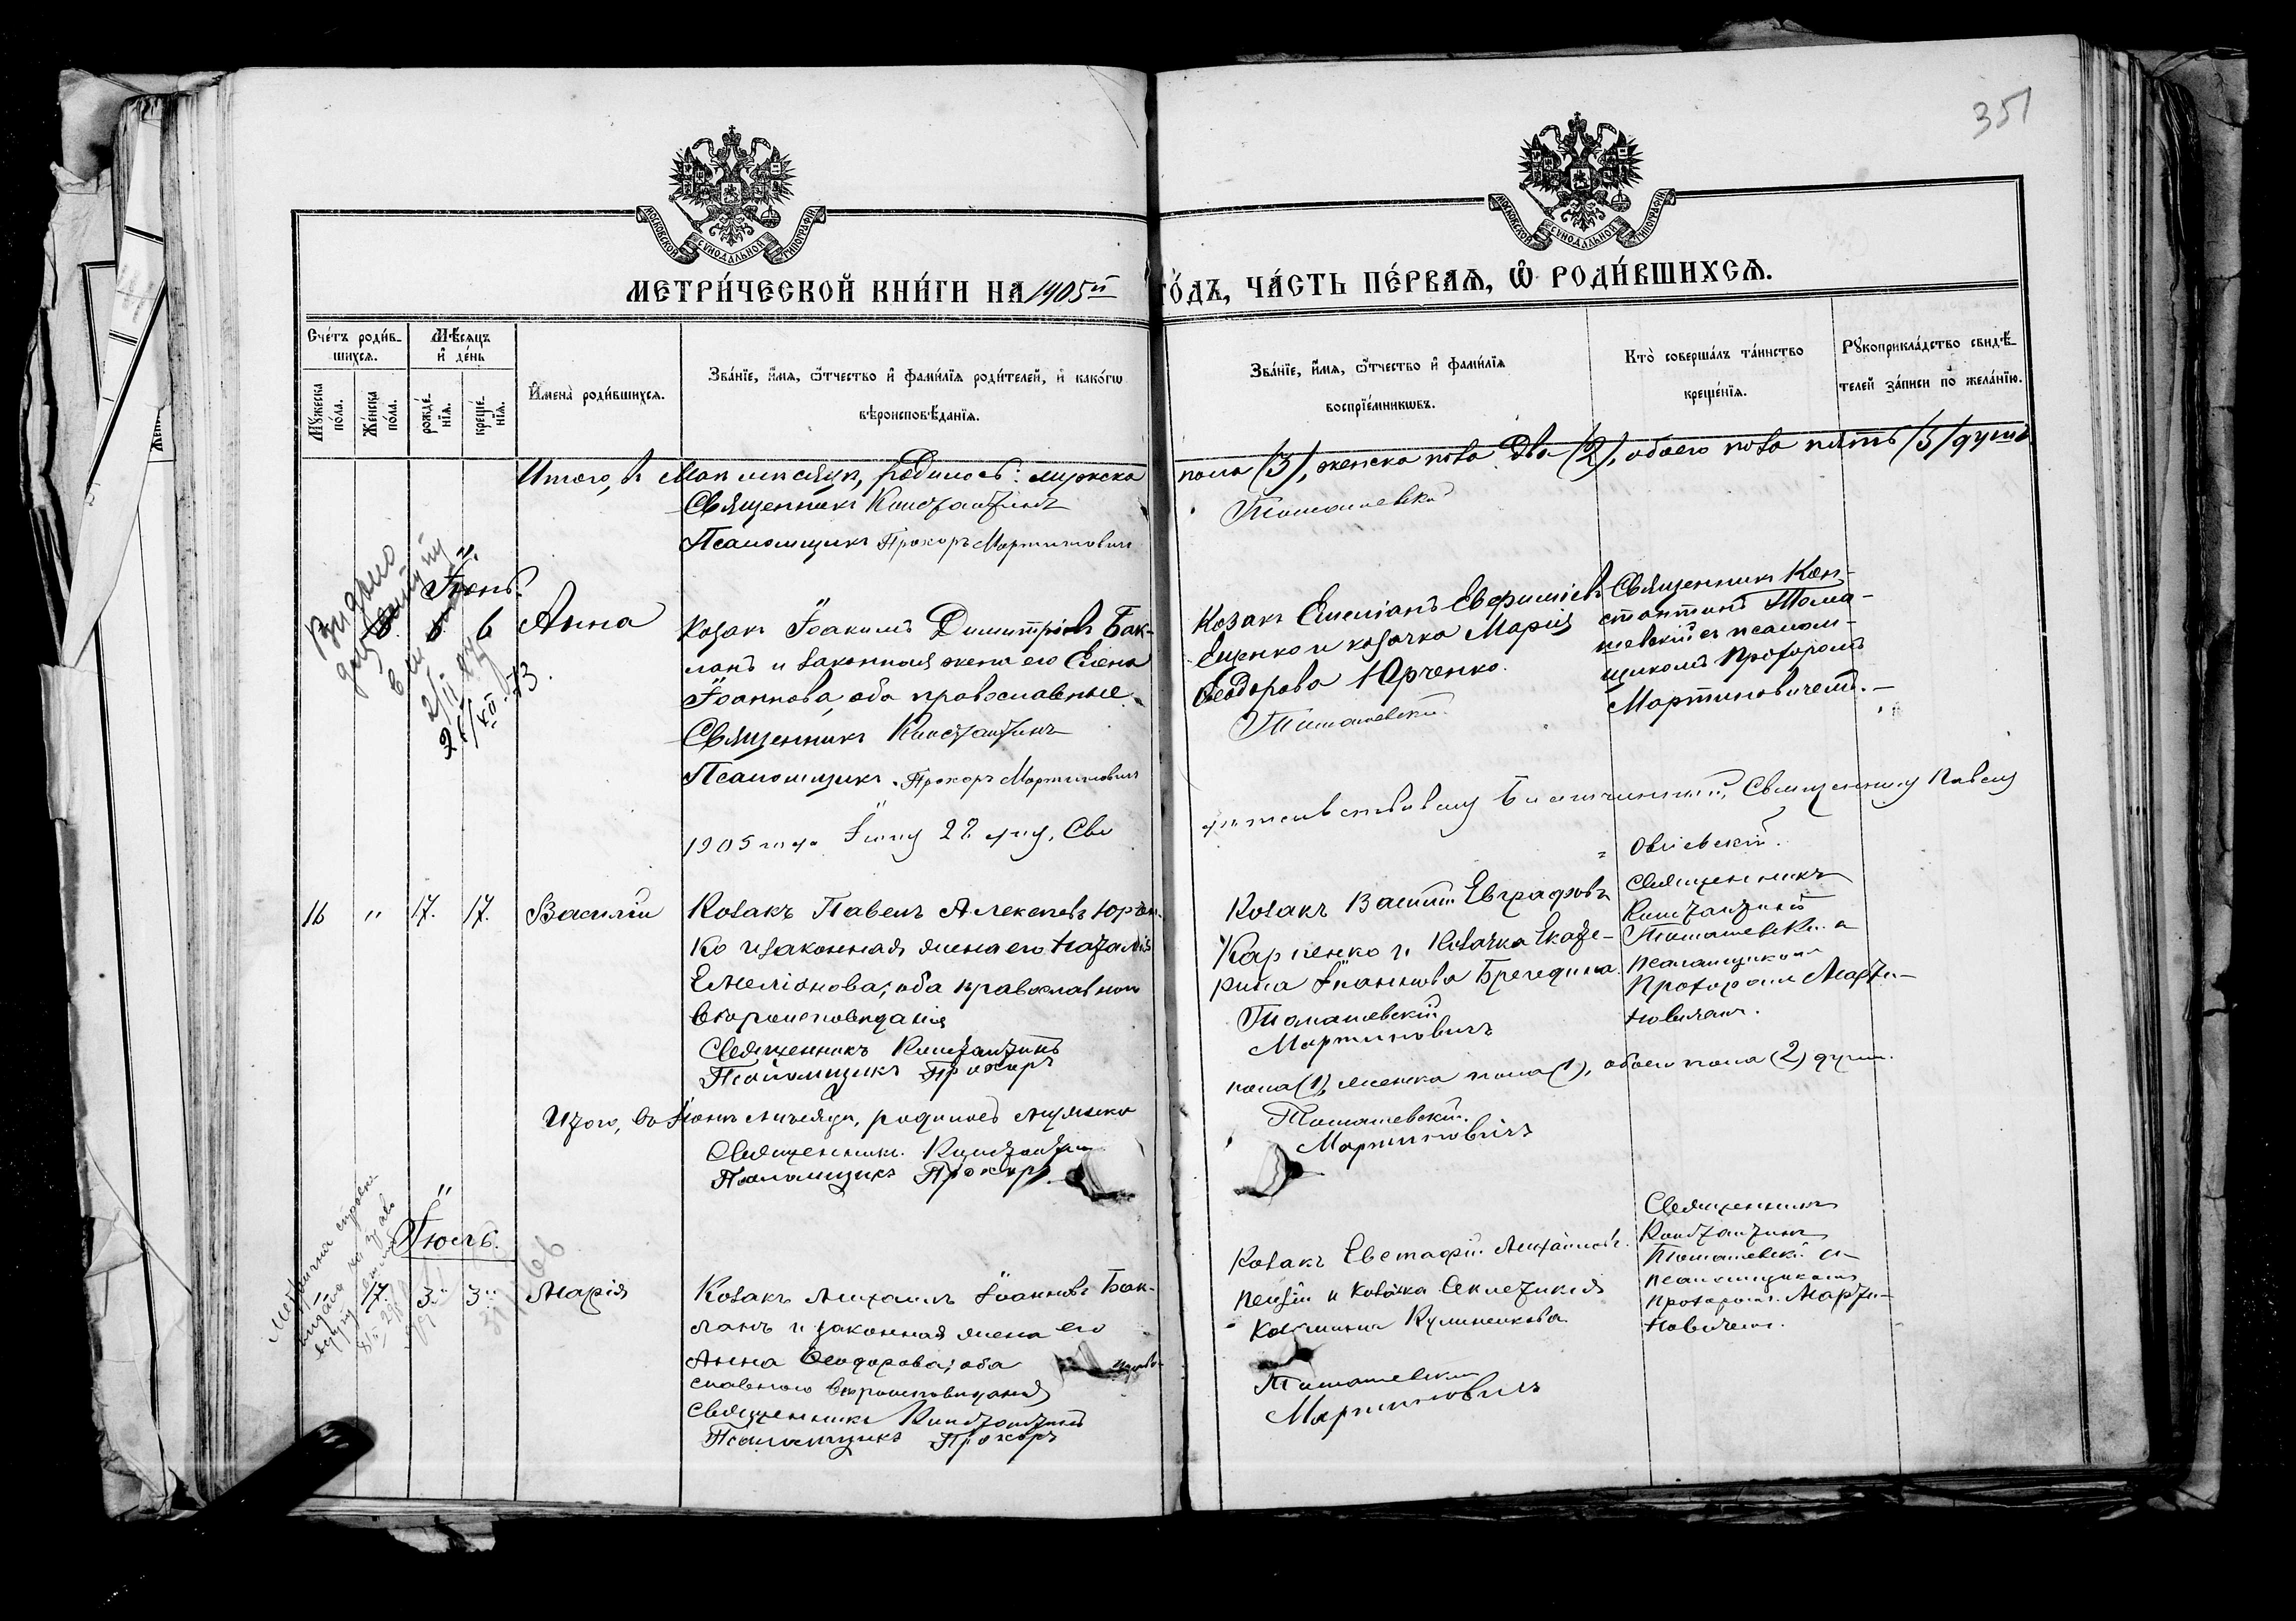 351
МОСКОВСКОЙ СѴНОДАЛЬНОЙ ТИПОГРАФІИ
МОСКОВСКОЙ СѴНОДАЛЬНОЙ ТИПОГРАФІИ
МЕТРИ́ЧЕСКОЙ КНИ́ГИ НА 1905й ГО́ДЪ, ЧА́СТЬ ПЕ́РВАѦ, Ѽ РОДИ́ВШИХСѦ.
Сче́тъ роди́в-
шихсѧ.
Мꙋ́жеска по́ла.
Же́нска по́ла.
Мѣ́сѧцъ
и҆ де́нь
рожде́-
нїѧ.
креще́-
нїѧ.
И҆мена̀ роди́вшихсѧ.
Зва́нїе, и҆́мѧ, ѻ҆́тчество и҆ фами́лїѧ роди́телей, и҆ како́гѡ
вѣроисповѣ́данїѧ.
Зва́нїе, и҆́мѧ, ѻ҆́тчество и҆ фами́лїѧ
воспрїе́мникѡвъ.
Кто̀ соверша́лъ та́инство
креще́нїѧ.
Рꙋкоприкла́дство свидѣ́-
телей за́писи по жела́нїю.
Итого, въ Маѣ мѣсяцѣ, родилось: мужска пола (3), женска пола два (2), обоего пола пять (5) душъ
Священникъ Константинъ Томашевскій
Псаломщикъ Прохоръ Мартиновичъ
Іюнь.
Видано
6
Анна
Козакъ Іоакимъ Димитріевъ Бак-
ланъ и законная жена его Елена
Іоаннова, оба православные.
Козакъ Емеліанъ Евфиміевъ
Ещенко и козачка Марія
Ѳеодорова Юрченко.
Священникъ Кон-
стантинъ Тома-
шевскій съ псалом-
щикомъ Прохоромъ
Мартиновичемъ.
Священникъ Константинъ Томашевскій
Псаломщикъ Прохоръ Мартиновичъ
1905 года Іюня 22 дня, Сви
дѣтельствовалъ Благочинный, Священникъ Павелъ
16 " 17. 17. Василій
Козакъ Павелъ Алексѣевъ Юрчен-
ко и законная жена его Наталія
Емеліанова; оба православнаго
вѣроисповѣданія
Козакъ Василій Евграфовъ
Карпенко и козачка Екате-
рина Іоаннова Брегедина.
Священникъ
Константинъ
Томашевскій съ
псаломщикомъ
Прохоромъ Марти-
новичемъ.
Священникъ Константинъ Томашевскій
Псаломщикъ Прохоръ Мартиновичъ
Итого, въ Іюнѣ мѣсяцѣ, родилось мужска пола (1), женска пола (1), обоего пола (2) души.
Священникъ Константинъ Томашевскій.
Псаломщикъ Прохоръ Мартиновичъ
Іюль.
17 3 3 Марія
Козакъ Михаилъ Іоанновъ Бак-
ланъ и законная жена его
Анна Ѳеодорова; оба право-
славнаго вѣроисповѣданія
Козакъ Евстафій Михайловъ
и козачка
Священникъ
Константинъ
Томашевскій съ
псаломщикомъ
Прохоромъ Марти-
новичемъ.
Священникъ Константинъ Томашевскій
Псаломщикъ Прохоръ Мартиновичъ